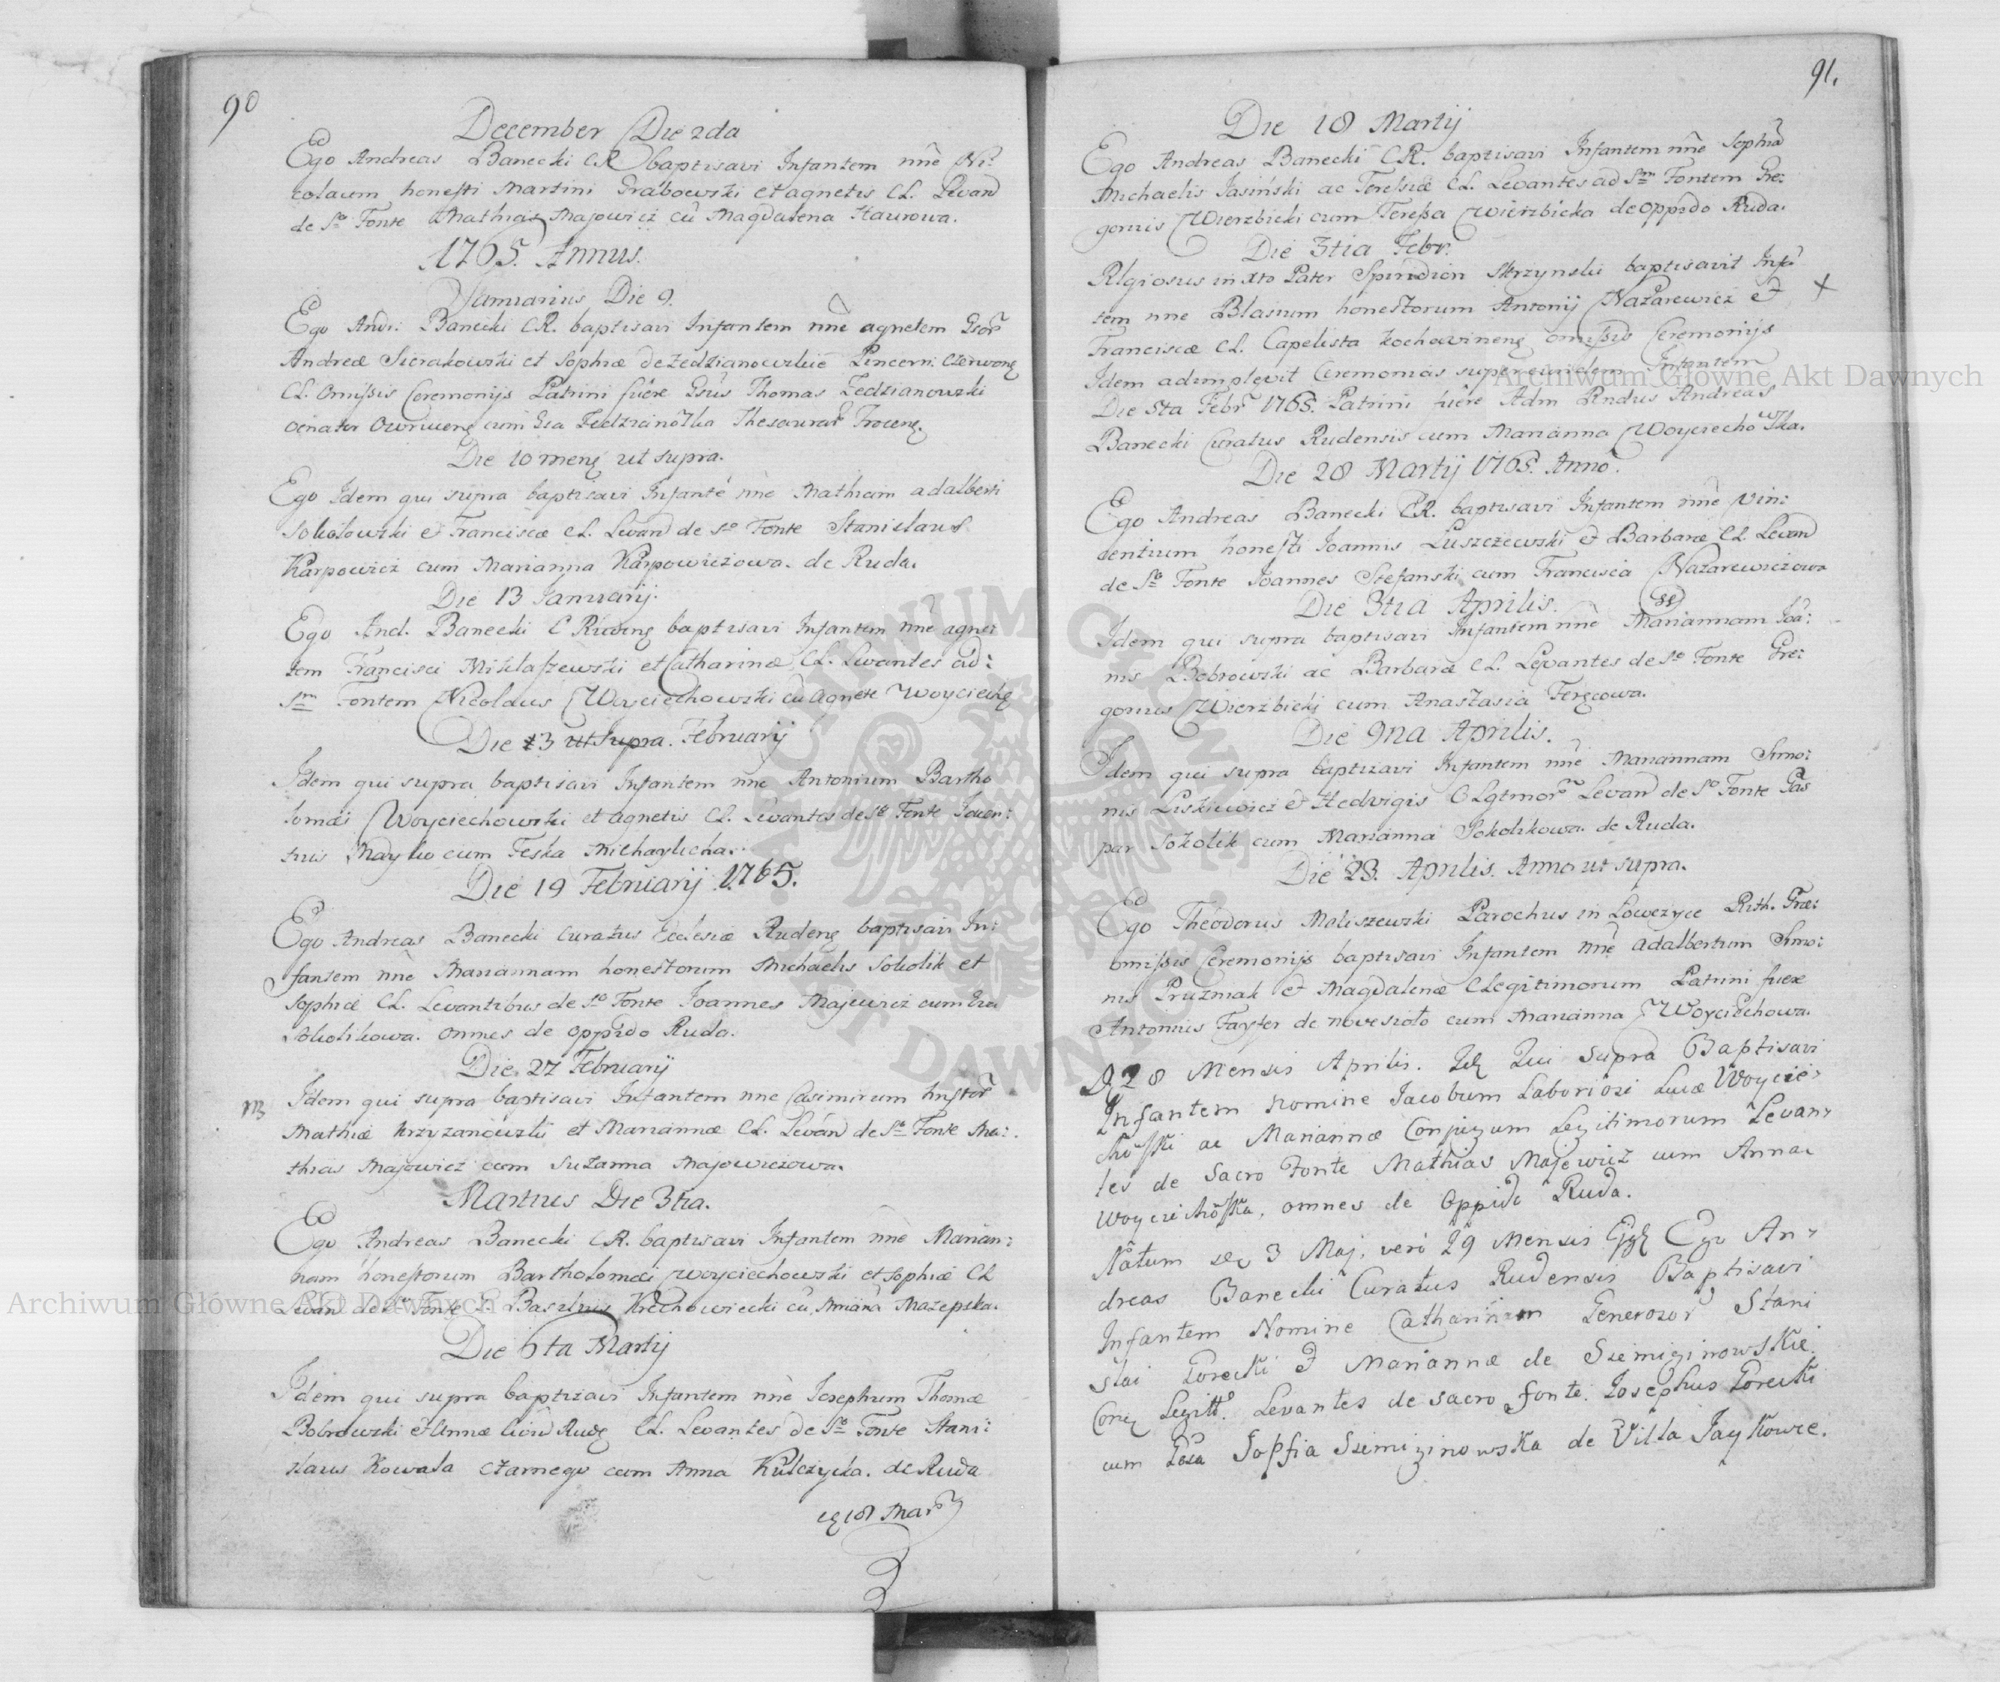 90
December Die 2da
Ego Andreas Banecki CR baptisavi Infantem nne Ni:
colaum honesti Martini Grabowski et agnetis CL. Levand
de So Fonte Mathias Majowicz cũ Magdalena Haurowa.
1765. Annus.
Januarius Die 9.
Ego Andr: Banecki CR. baptisavi Infantem nne agnetem
Andreæ Sierakowski et Sophiæ de
CL. omissis Ceremonijs Patrini fuere Thomas Zedzianowski
cum
Die 10 mens ut supra.
Ego Idem qui supra baptisavi Infante nne Mathiam adalberti
Sokolowski et Franciscæ CL. Levan de So Fonte Stanislaus
Karpowicz cum Marianna Karpowiczowa. de Ruda.
Die 13 January.
Ego And. Banecki baptisavi Infantem nne agne:
tem Francisci Miklaszewski et Catharinæ CL. Levantes ad:
Sm Fontem Nicolaus Woyciechowski cũ Agnete Woyciech
Die 13 ut supra. Februarij
Idem qui supra baptisavi Infantem nne Antonium Bartho
lomæi Woyciechowski et agnetis CL. Levantes de So Fonte
cum Michaylicha.
Die 19 Februarij 1765.
Ego Andreas Banecki curatus Ecclesiæ Rudens baptisavi In:
fantem nne Mariannam honestorum Michaelis Sokolik et
Sophiæ CL. Levantibus de So Fonte Joannes Majewicz cum Eva
Sokolikowa. omnes de oppido Ruda.
Die 27 Februarij
Idem qui supra baptisavi Infantem nne Casimirum
Mathiæ Krzyzanowski et Mariannæ CL. Levan de So Fonte Ma:
thias Majowicz cum Suzanna Majowiczowa.
Martius Die 3tia.
Ego Andreas Banecki CR. baptisavi Infantem nne Marian:
nam honestorum Bartholomæi Woyciechowski et Sophiæ CL
Levan de So Fonte Basilius Krechowiecki cũ Mazepska.
Die 6ta Martij
Idem qui supra baptisavi Infantem nne Josephum Thomæ
Bobrowski et Annæ CL. Levantes de So Fonte Stani:
slaus Kowala czarnego cum Anna Kulczycka. de Ruda
18 Mar
91.
Die 18 Martij
Ego Andreas Banecki CR. baptisavi Infantem nne Sophia
Michaelis Jasiński ac Teresiæ CL. Levantes ad Sm Fontem Gre:
gorius Wierzbicki cum Teressa Wierzbicka de oppido Ruda.
Die 3tia Febr.
Rlgiosus in xto Pater Spiridion Skrzynski baptisavit Infa
tem nne Blasium honestorum Antonij Nazarewicz et
Franciscæ CL. Capelista omissis Ceremonijs
Idem adimplevit Ceremonias super eundem Infantem
Die 5ta Febr 1765. Patrini fuere Adm Rndus Andreas
Banecki Curatus Rudensis cum Marianna Woyciechowska.
Die 28 Martij 1765. Anno.
Ego Andreas Banecki CR. baptisavi Infantem nne Vin:
centium honesti Joannis Luszczewski et Barbaræ CL Levand
de So Fonte Joannes Stefanski cum Francisca Nazarewiczowa
Die 3tia Aprilis.
Idem qui supra baptisavi Infantem nne Mariannam Joa:
nis Bobrowski ac Barbaræ CL. Levantes de So Fonte Gre:
gorius Wierzbicki cum Anastasia
Die 9na Aprilis.
Idem qui supra baptizavi Infantem nne Mariannam Simo:
nis Liskiewicz et Hedvigis CLgtmor Levan de So Fonte Gas
par Sokolik cum Marianna Sokolikowa de Ruda.
Die 23. Aprilis. Anno ut supra.
Ego Theodorus Maliszewski Parochus in Lowczyce Rith. Græ:
omissis Ceremonijs baptisavi Infantem nne Adalbertum Simo:
nis Pruzmak et Magdalenæ CLegitimorum Patrini fuere
Antonius Fayfer de novesioło cum Marianna Woyciechowa.
D 28 Mensis Aprilis. Qui Supra Baptisavi
Infantem Nomine Jacobum Laboriosi Lucæ Woycie-
ac Mariannæ Conjugum Legitimorum Levan-
tes de Sacro Fonte Mathias Majewicz cum Anna
omnes de Oppido Ruda.
Natum 3 Maj, vero 29 Mensis Ego An-
dreas Banecki Curatus Rudensis Baptisavi
Infantem Nomine Catharinam Generosor Stani
slai Gorecki et Mariannæ de Siemiginowskie
Legitt. Levantes de Sacro fonte. Josephus Gorecki
cum Sopfia Siemiginowska de Villa Jaykowce.
Archiwum Główne Akt Dawnych
Archiwum Główne Akt Dawnych
ARCHIWUM GŁÓWNE AKT DAWNYCH